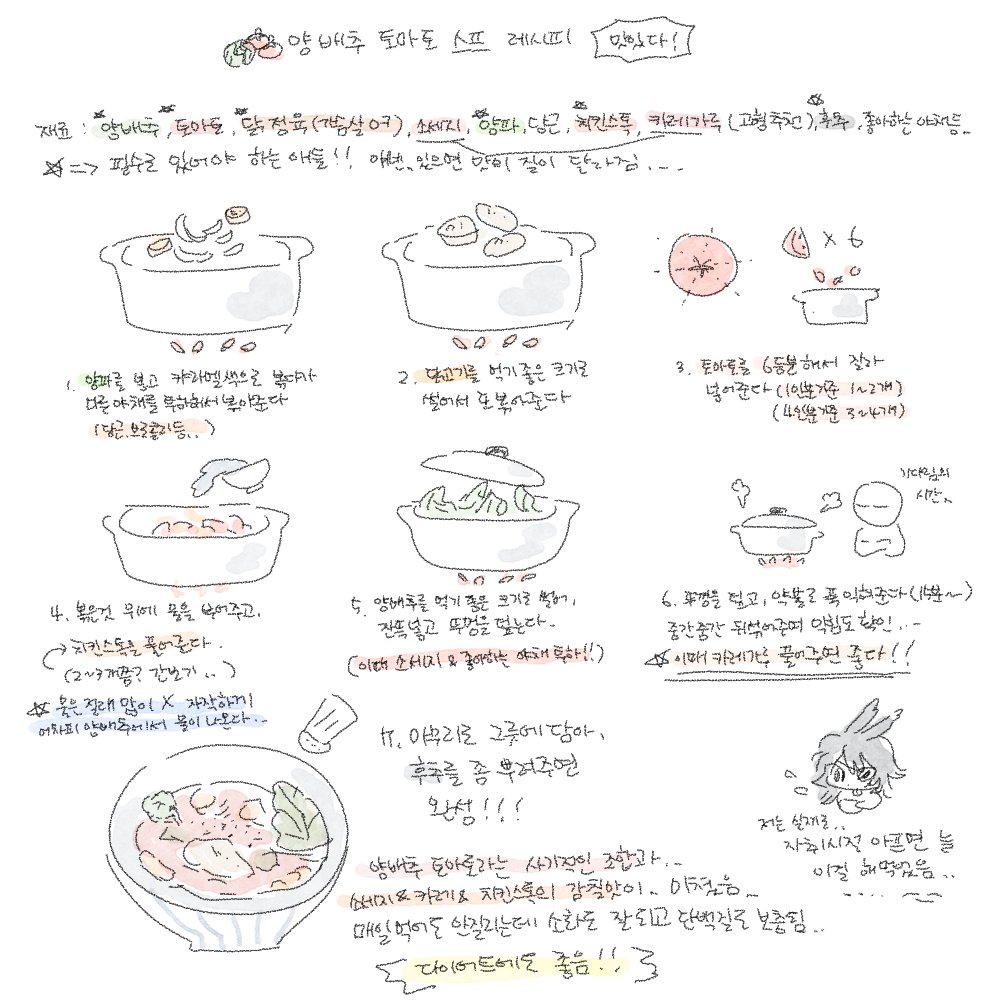 양배추 토마토 스프 레시피 맛있다!
재료 : 양배추, 토마토, 닭정육(가슴살 OK), 소세지, 양파, 당근, 치킨스톡, 카레가루(고형추천), 후추, 좋아하는 야채등..
☆ => 필수로 있어야 하는 애들!! 얘넨 있으면 맛이 질이 달라짐...
1. 양파를 넣고 캬라멜색으로 볶다가
다른 야채를 투하해서 볶아준다
(당근, 브로콜리등..)
2. 닭고기를 먹기좋은 크기로
썰어서 또 볶아준다
3. 토마토를 6등분해서 잘라
넣어준다 (1인분기준 1~2개)
(4인분기준 3~4개)
× 6
4. 볶은것 위에 물을 부어주고,
치킨스톡을 풀어준다.
(2~3개쯤? 간보기..)
☆ 물은 절대 많이 X 자작하게
어차피 양배추에서 물이 나온다...
5. 양배추를 먹기 좋은 크기로 썰어,
잔뜩넣고 뚜껑을 덮는다.
(이때 소세지 & 좋아하는 야채 투하!!)
기다림의
시간..
6. 뚜껑을 덮고, 약불로 푹 익혀준다 (15분~)
중간중간 뒤섞어주며 익힘도확인...
☆이때 카레가루 풀어주면 좋다!!
7. 마무리로 그릇에 담아,
후추를 좀 뿌려주면
완성!!!
저는 실제로..
자취시절 아프면 늘
이걸 해먹었음..
양배추 토마토라는 사기적인 조합과...
소세지&카레& 치킨스톡의 감칠맛이.. 미쳤음...
매일먹어도 안질리는데 소화도 잘되고 단백질로 보충됨..
다이어트에도 좋음!!